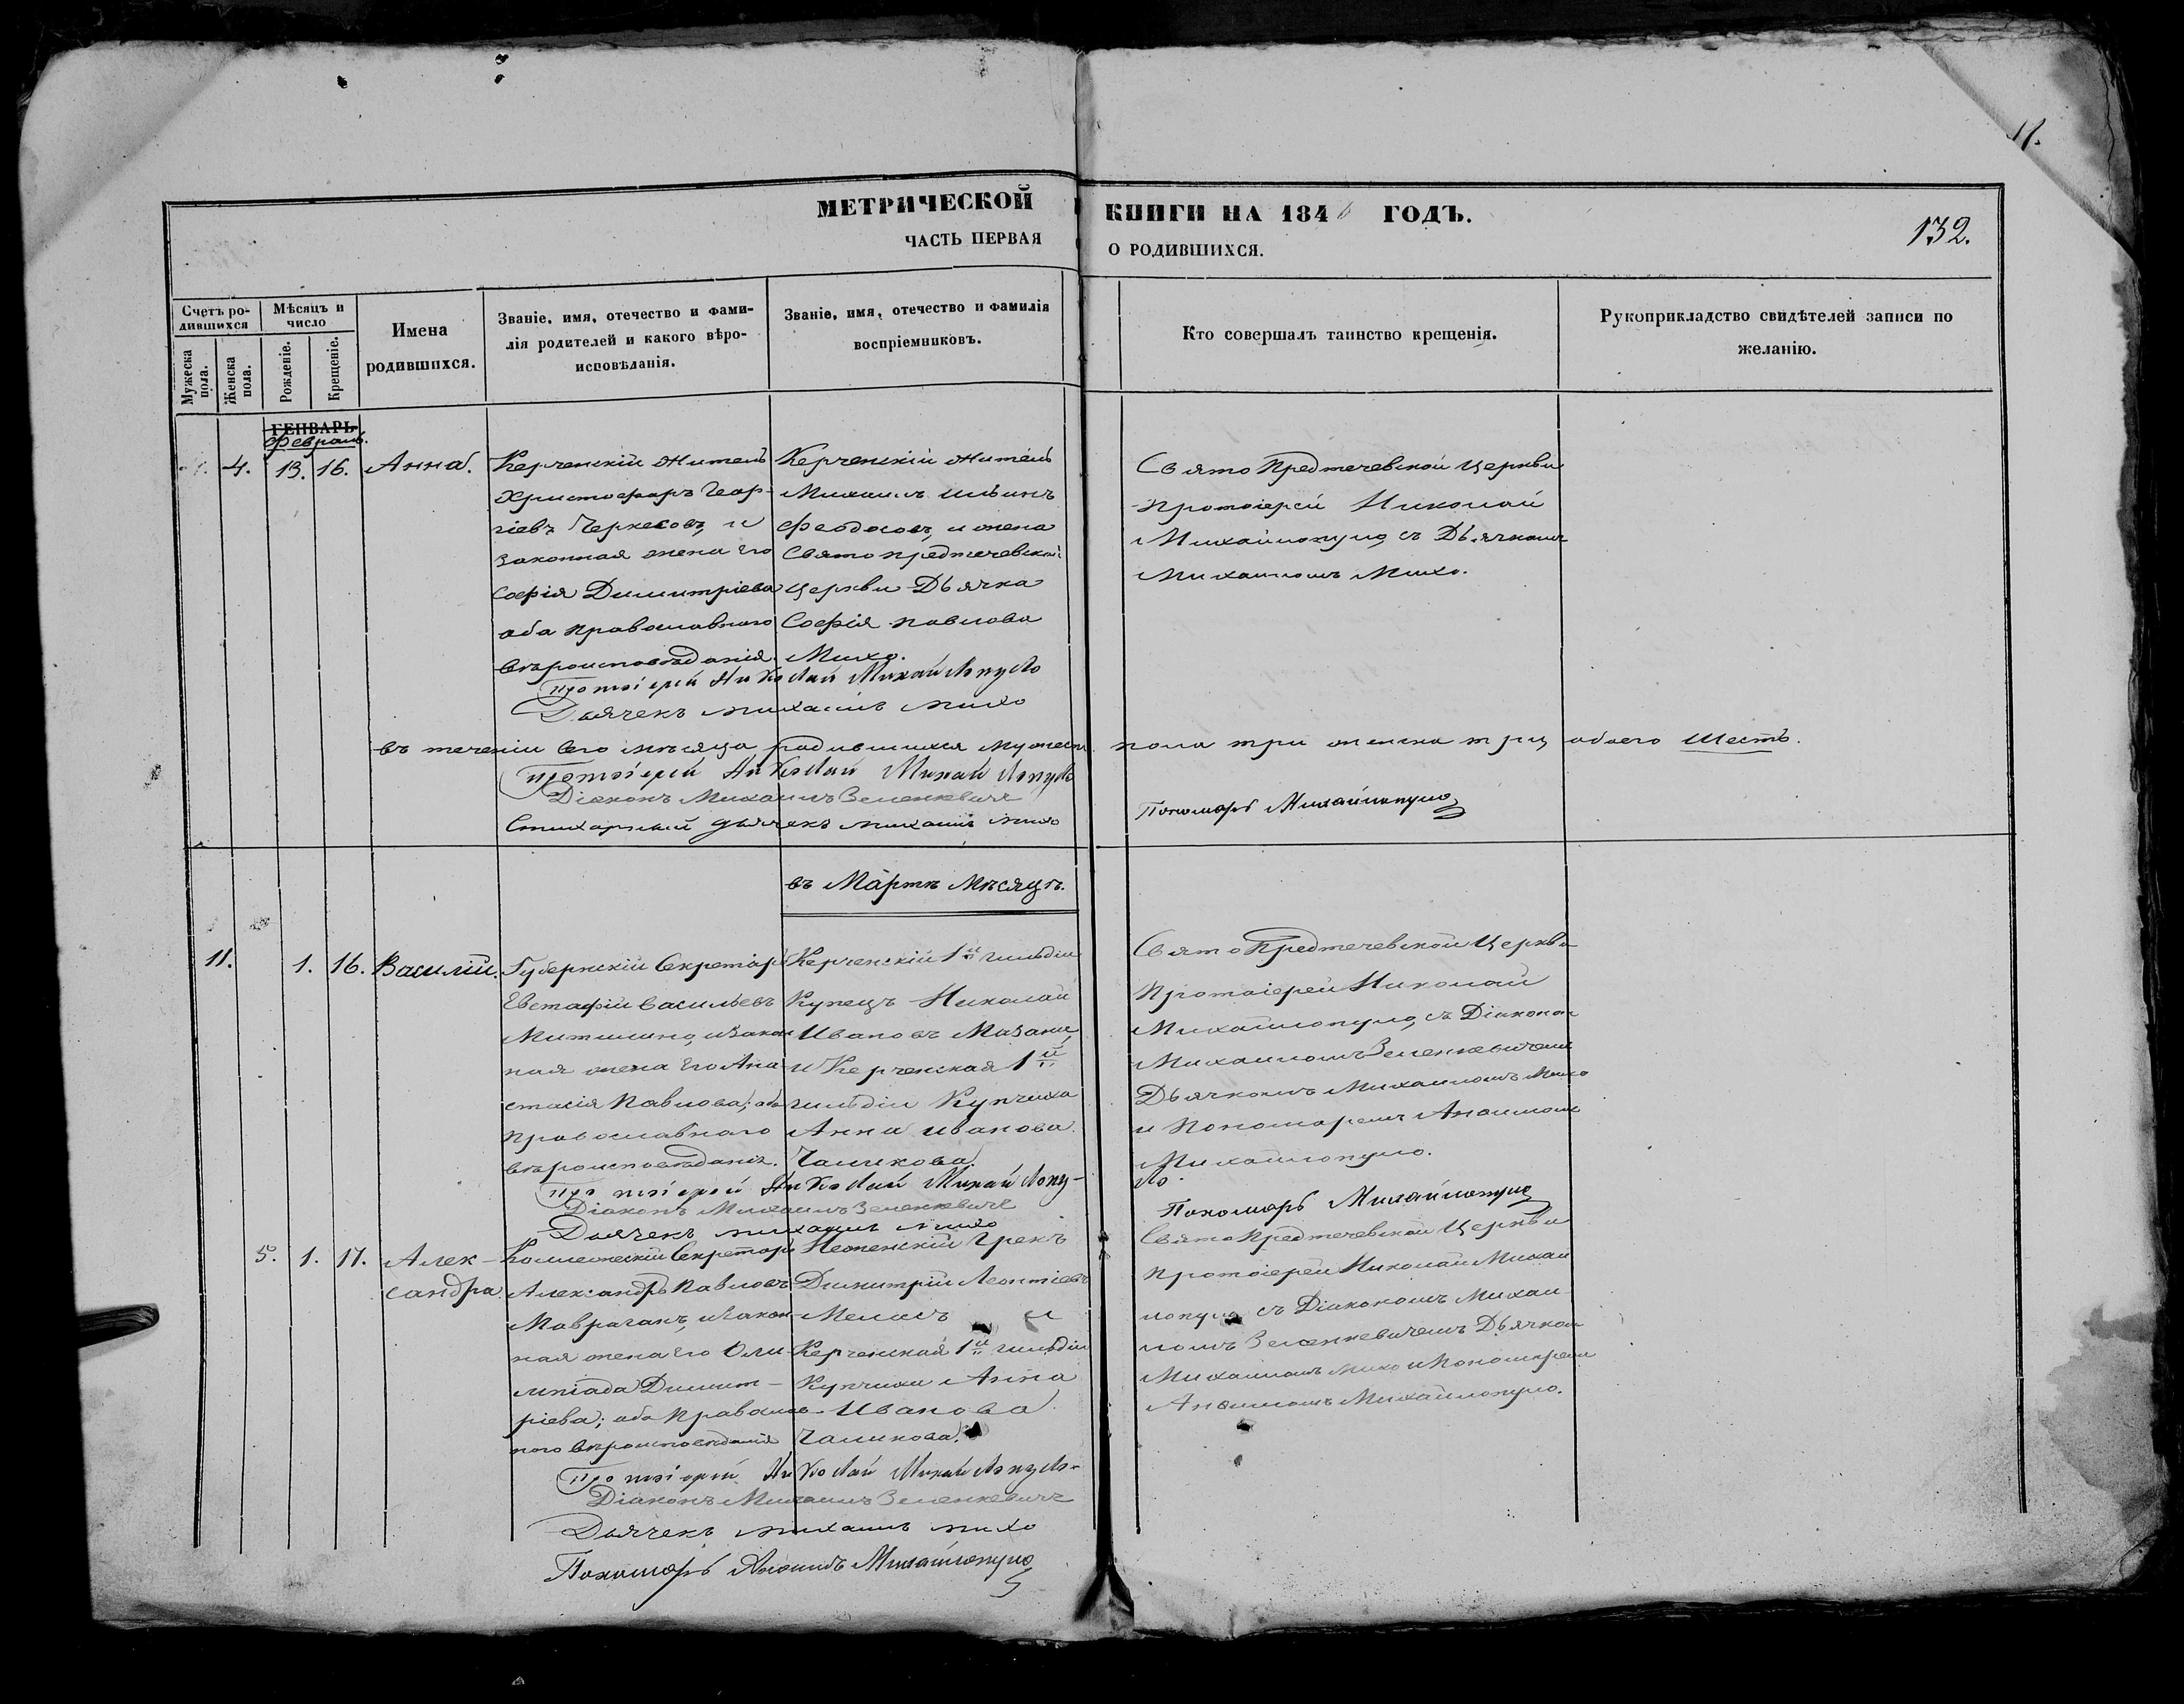 11.
МЕТРИЧЕСКОЙ КНИГИ НА 1846 ГОДЪ.
132.
ЧАСТЬ ПЕРВАЯ О РОДИВШИХСЯ.
Счетъ ро-
дившихся
Мужеска пола.
Женска пола.
Мѣсяцъ и
число
Рожденіе.
Крещеніе.
Имена
родившихся.
Званіе, имя, отечество и фами-
лія родителей и какого вѣро-
исповѣданія.
Званіе, имя, отечество и фамилія
воспріемниковъ.
Кто совершалъ таинство крещенія.
Рукоприкладство свидѣтелей записи по
желанію.
ГЕНВАРЬ
Февраль.
4. 13. 16. Анна.
Керченскій житель
Христофоръ Геор-
гіевъ Черкесовъ, и
законная жена его
Софія Димитріева
оба православнаго
вѣроисповѣданія.
Керченскій житель
Михаилъ Ильинъ
Феодосовъ, и жена
Свято предтечевской
церкви Дьячка
Софія Павлова
Михо.
Свято Предтечевской Церкви
Протоіерей Николай
Михайлопуло, съ Дьячкомъ
Михаиломъ Михо.
Протоіерей Николай Михайлопуло
Дьячекъ Михаилъ Михо
въ теченіи сего мѣсяца родившихся мужеска пола три женска три, обоего шесть.
Протоіерей Николай Михайлопуло
Діаконъ Михаилъ Зеленкевичъ
Стихарный дьячекъ Михаилъ Михо
Пономарь Михайлопуло
въ Мартѣ мѣсяцѣ.
11. 1. 16. Василій.
Губернскій Секретарь
Евстафій Васильевъ
Митилино, и закон
ная жена его Ана
стасія Павлова, оба
православнаго
вѣроисповѣданія.
Керченскій 1й гильдіи
Купецъ Николай
Ивановъ Мазани,
и Керченская 1й
гильдіи Купчиха
Анна Иванова
Чаликова.
Свято Предтечевской Церкви
Протоіерей Николай
Михайлопуло, съ Діакономъ
Михаиломъ Зеленкевичемъ
Дьячкомъ Михаиломъ Михо
и Пономаремъ
Михайлопуло.
Протоіерей Николай Михайлопу-
ло.
Діаконъ Михаилъ Зеленкевичъ
Дьячекъ Михаилъ Михо
Пономарь Михайлопуло
5. 1. 17. Алек-
сандра.
Коллежскій Секретарь
Александръ Павловъ
Навраганъ, и закон
ная жена его Оли-
мпіада Димит-
ріева; оба православ-
наго вѣроисповѣданія
Нѣженскій Грекъ
Димитрій Леонтіевъ
Меласъ и
Керченская 1й гильдіи
Купчиха Анна
Иванова
Чаликова.
Свято Предтечевской Церкви
Протоіерей Николай Михай
лопуло, съ Діакономъ Михаи
ломъ Зеленкевичемъ Дьячкомъ
Михаиломъ Михо и Пономаремъ
Михайлопуло.
Протоіерей Николай Михайлопуло.
Діаконъ Михаилъ Зеленкевичъ
Дьячекъ Михаилъ Михо
Пономарь Михайлопуло